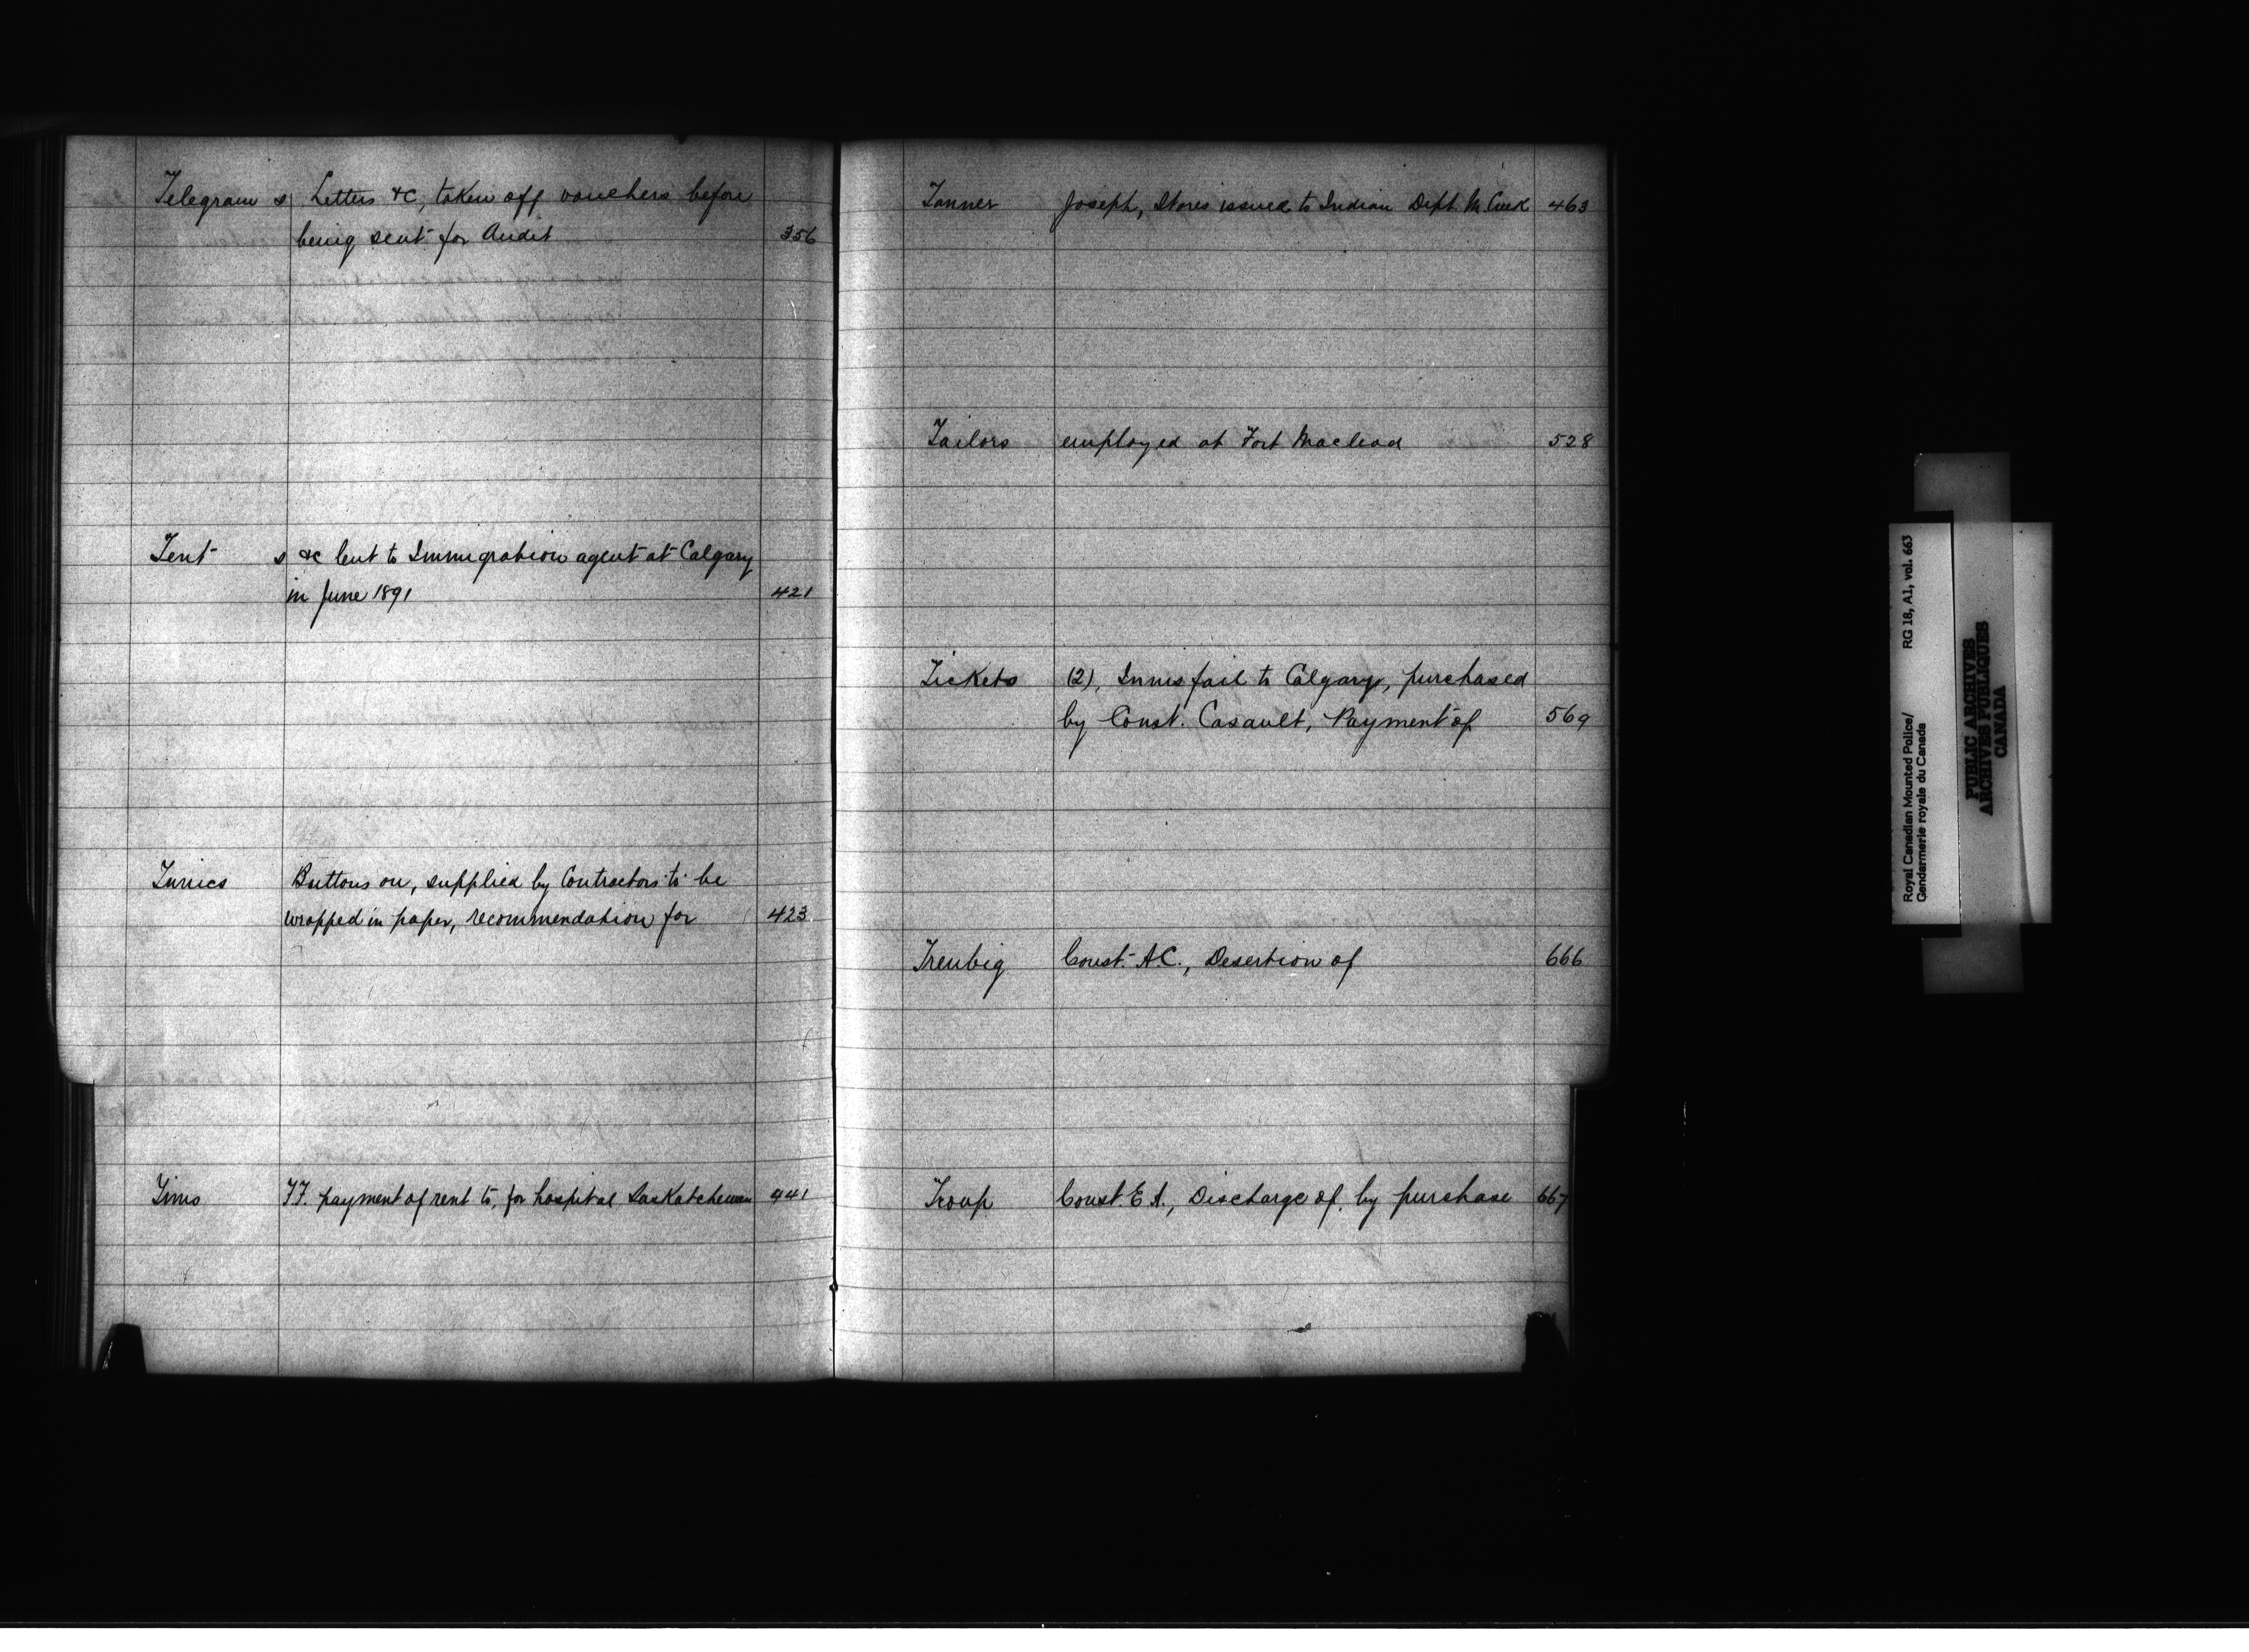 Telegram s Letters &c, taken off vouchers before
being sent for Audit 356
Tent s &c lent to Immigration agent at Calgary
in June 1891 421
Tunics Buttons on, supplied by Contractors to be
wrapped in paper, recommendation for 423
Tims F.F. payment of rent to, for hospital Saskatchewan 441
Tanner Joseph, Stores issued to Indian Dept. M. Creek 463
Tailors employed at Fort Macleod 528
Tickets (2), Innisfail to Calgary, purchased
by Const. Casault, Payment of 569
Treubig Const. A.C., Desertion of 666
Troup Const. E.A., Discharge of, by purchase 667
Royal Canadian Mounted Police/ RG 18, A1, vol. 663
Gendarmerie royale du Canada
PUBLIC ARCHIVES
ARCHIVES PUBLIQUES
CANADA